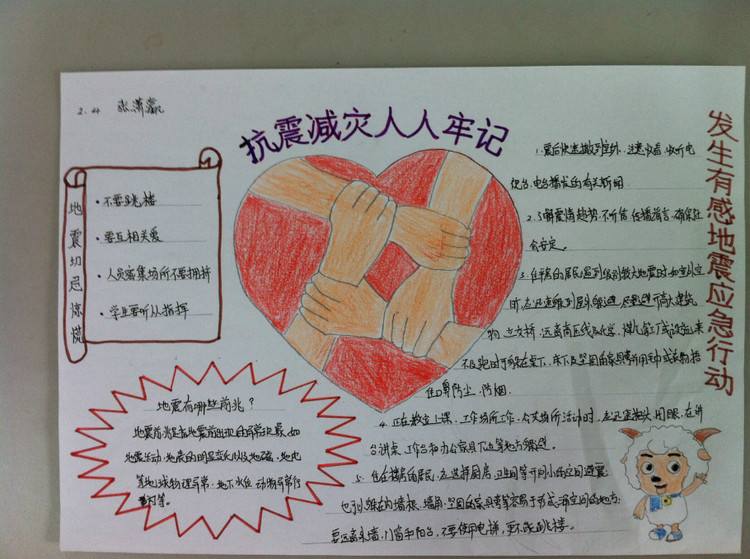 2.4 张潇嬴
抗震减灾人人牢记
发生有感地震应急行动
地震切忌惊慌
·不要跳楼
·要互相关爱
·人员密集场所不要拥挤
·学生要听从指挥
地震有哪些前兆?
地震前兆是指地震前出现的异常现象,如
地震活动、地表的明显变化以及地磁、地电
等地球物理异常、地下水位动物异常行
为等。
1.震后快速撤到室外,注意收看、收听电
视台、电台播发的有关新闻
2.了解震情趋势,不听信、传播谣言,确保社
会安定。
3.住平房的居民遇到级别较大地震时,如室外空
旷,应迅速跑到屋外躲避,尽量避开高大建筑
物、立交桥,远离高压线及化学、煤气等工厂或设施;来
不及跑时可躲在桌下、床下及坚固的家具旁,并用毛巾或衣物捂
住口鼻防尘、防烟.
4.正在教室上课、工作场所工作、公共场所活动时,应迅速抱头、闭眼,在讲
台、讲桌、工作台和办公家具下边等地方躲避.
5.住在楼房的居民,应选择厨房、卫生间等开间小的空间避震;
也可以躲在内墙根、墙角、坚固的家具旁等容易于形成三角空间的地方;
要远离外墙、门窗和阳台,不要使用电梯,更不能跳楼。